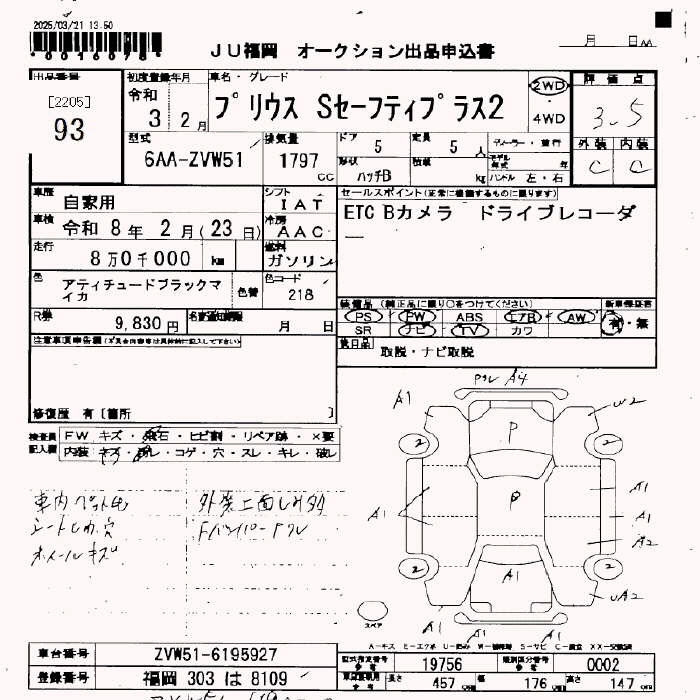 2025/03/21 13:50
*0016078*
JU福岡 オークション出品申込書
月 日
出品番号
[2205]
93
初度登録年月
令和
3 2月
車名・グレード
プリウス Sセーフティプラス2
2WD
4WD
評価点
3.5
外装 内装
C C
型式
6AA-ZVW51
排気量
1797
CC
ドア
5
定員
5 人
形状
ハッチB
積載
kg
ディーラー・並行
モデル年式 年
ハンドル 左・右
車歴
自家用
シフト
IAT
車検
令和 8年 2月(23日)
冷房
AAC
走行
8万0千000 km
燃料
ガソリン
色
アティチュードブラックマイカ
色替
色コード
218
R券
9,830円
名変通知期限
月 日
セールスポイント(正常に機能するものに限ります)
ETC Bカメラ ドライブレコーダ
ー
装備品(純正品に限り○をつけてください)
新車保証書
PS PW ABS エアB AW
SR ナビ TV カワ
有・無
後日品
取説・ナビ取説
注意事項申告欄
修復歴 有〔箇所 〕
検査員記入欄
FW キズ・飛石・ヒビ割・リペア跡・×要
内装 キズ・汚レ・コゲ・穴・スレ・キレ・破レ
車内ペット毛
シートしわ、穴
ホイールキズ
外装上面しみ多
Fバンパートワレ
A4
A1
W2
P
2
2
A1
A1
A1
A2
2
2
A1
UA2
A1
A1
スペア
車台番号
ZVW51-6195927
登録番号
福岡 303 は 8109
型式指定番号
19756
類別区分番号
0002
長さ
457
幅
176
高さ
147